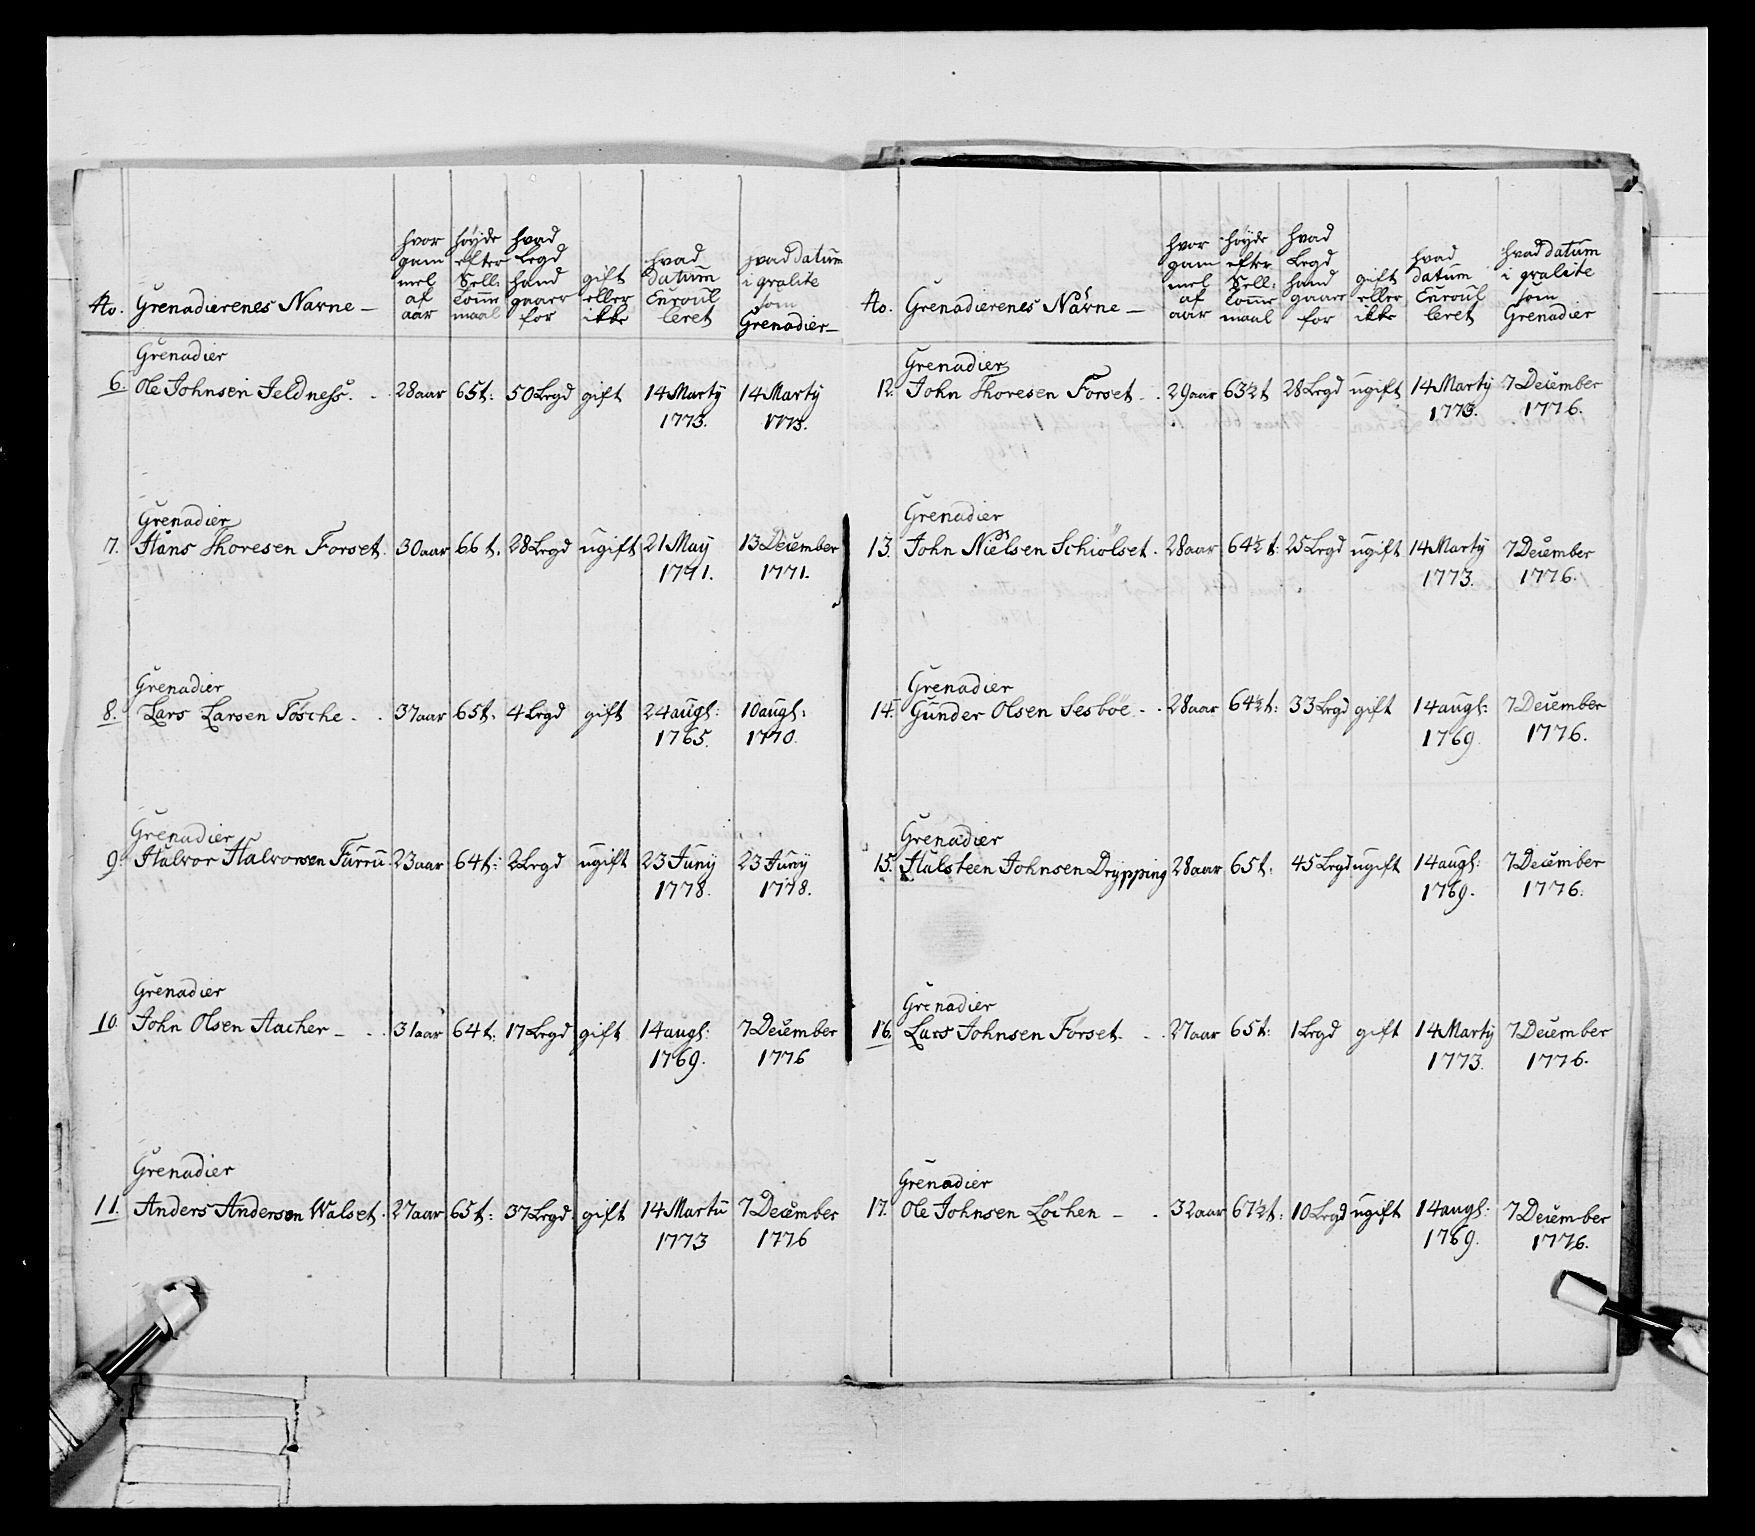 No. Grenadierenes Navne —
hvor gam mel af aar
høyde efter Sell: Comᷠe maal
hvad Legd hand gaaer for
gift eller ikke
hvad Datum Enroul leret
hvad datum i qvalite som Grenadier —
Grenadier
6. Ole Johnsen Feldness. - 28 aar 65 t: 50 Legd gift 14 Marty 14 Marty
1773. 1773.
Grenadier
7. Hans Thoresen Forset. 30 aar 66 t. 28 Legd ugift 21 May 13 December
1771. 1771.
Grenadier
8. Lars Larsen Fosche - . 37 aar 65 t. 4 Legd gift 24 augt: 10 augt:
1765. 1770.
Grenadier
9. Halvor Halvorsen Furru. 23 aar 64 t: 2 Legd ugift 23 Juny 23 Juny
1778. 1778.
Grenadier
10. John Olsen Aacher - . 31 aar 64 t: 17 Legd gift 14 augt: 7 December
1769. 1776
Grenadier
11. Anders Andersen Walset. 27 aar 65 t: 37 Legd gift 14 Marty 7 December
1773 1776
No. Grenadierenes Navne —
hvor gam mel af aar
høyde efter Sell: Come maal
hvad Legd hand gaaer for
gift eller ikke
hvad datum Enroul leret
hvad datum i qvalite som Grenadier
Grenadier
12. John Thoresen Forset - . 29 aar 63½ t 28 Legd ugift 14 Marty 7 December
1773. 1776.
Grenadier
13. John Nielsen Schiölset. 28 aar 64½ t: 25 Legd ugift 14 Marty 7 December
1773. 1776.
Grenadier
14. Gunder Olsen Sesböe - . 28 aar 64½ t: 33 Legd gift 14 augt: 7 December
1769. 1776.
Grenadier
15. Halsteen Johnsen Drypping 28 aar 65 t: 45 Legd ugift 14 augt: 7 December
1769. 1776.
Grenadier
16. Lars Johnsen Forset. - . 27 aar 65 t: 1 Legd gift 14 Marty 7 December
1773. 1776.
Grenadier
17. Ole Johnsen Löchen - . 32 aar 67½ t: 10 Legd ugift 14 augt: 7 December
1769. 1776.